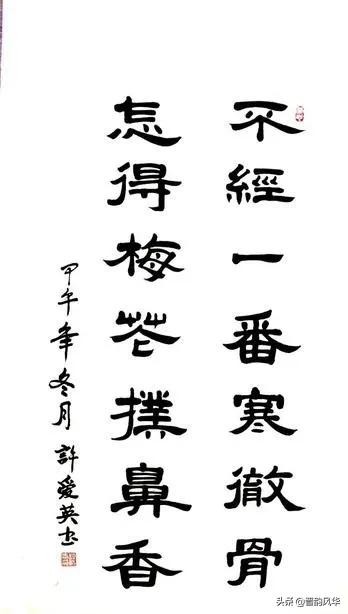 不經一番寒徹骨
怎得梅花撲鼻香
甲午年冬月 許愛英书
头条 @晋韵风华